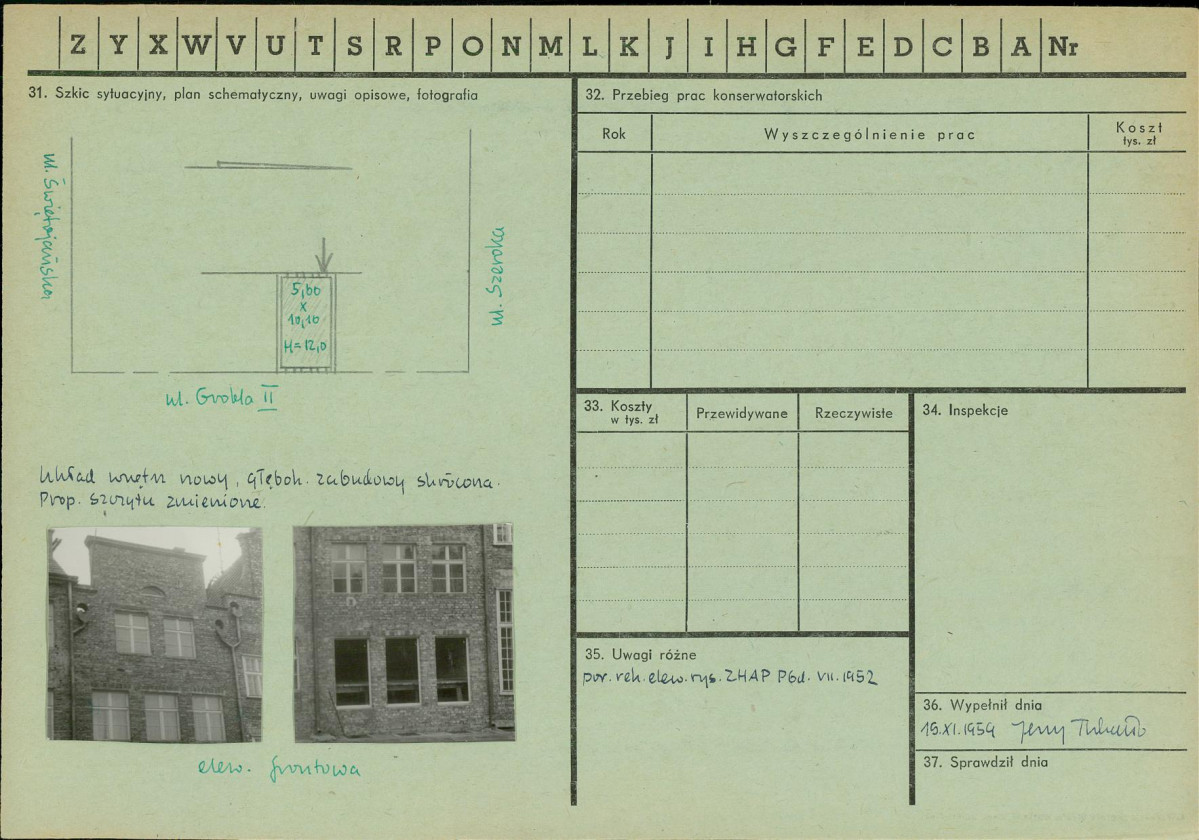 Z Y X W V U T S R P O N M L K J I H G F E D C B A Nr
31. Szkic sytuacyjny, plan schematyczny, uwagi opisowe, fotografia
ul. Świętojańska
5,60
x
10,10
H=12,0
ul. Szeroka
ul. Grobla II
Układ wnętrz nowy, głębok. zabudowy skrócona.
Prop. szczytu zmienione.
elew. frontowa
32. Przebieg prac konserwatorskich
Rok
Wyszczególnienie prac
Koszt
tys. zł
33. Koszty
w tys. zł
Przewidywane
Rzeczywiste
34. Inspekcje
35. Uwagi różne
por. reh. elew. rys. ZHAP PGd. VII.1952
36. Wypełnił dnia
15.XI.1959 Jerzy
37. Sprawdził dnia